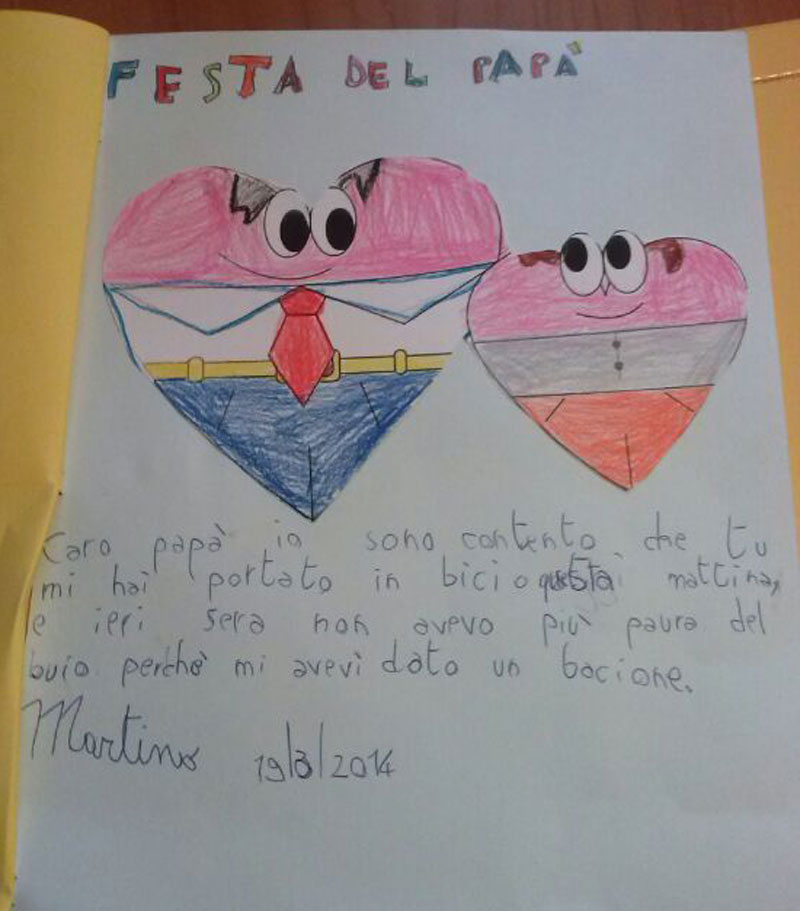 FESTA DEL PAPÀ
Caro papà io sono contento che tu
mi hai portato in bici questa mattina,
e ieri sera non avevo più paura del
buio perchè mi avevi dato un bacione.
Martino 19/3/2014